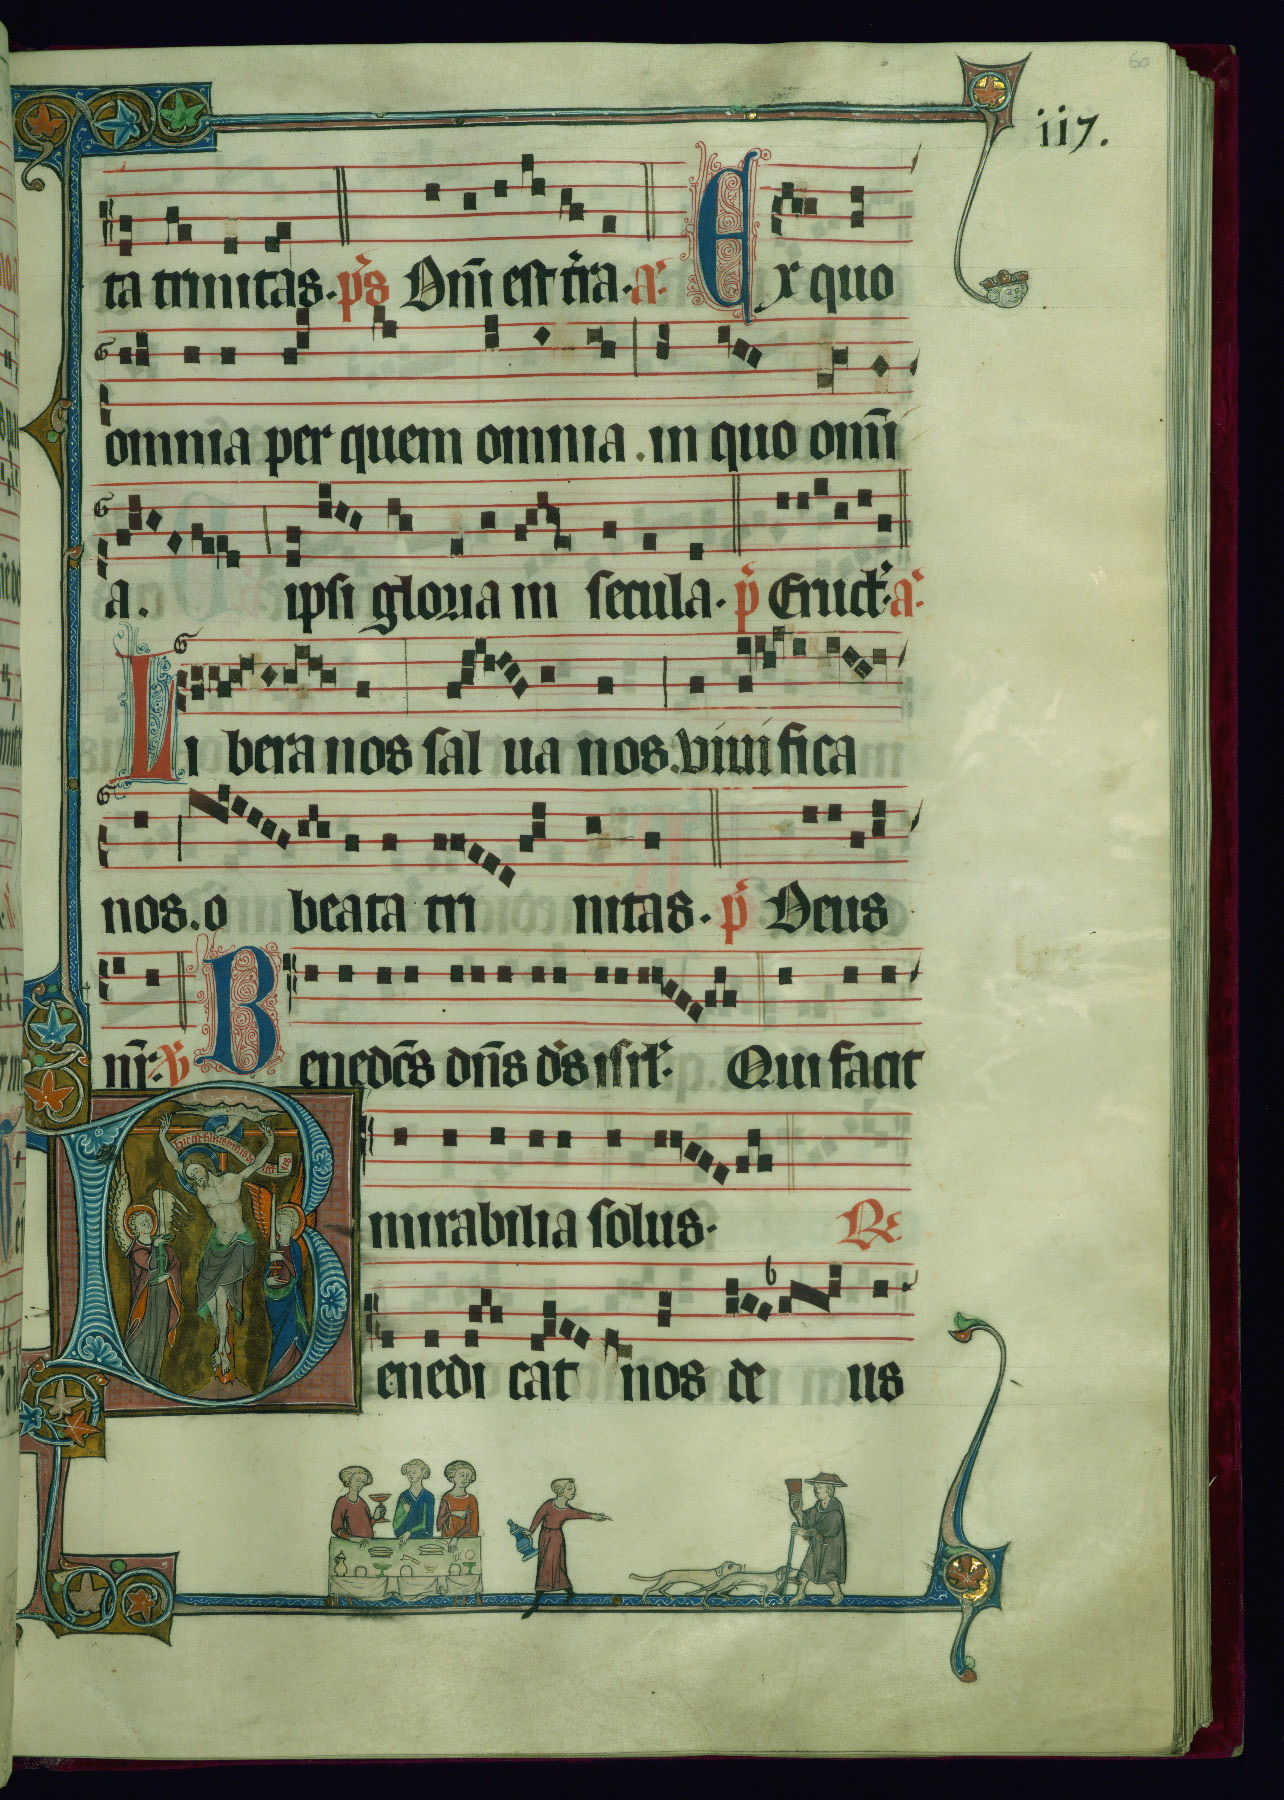 60
iij.
ta trinitas. p̃s Dñi est t̃ra. a. Ex quo
omnia per quem omnia. in quo omĩ
a. ipsi gloria in secula. p̃ Eruct. a.
Li bera nos sal ua nos. viuifica
nos. o beata tri nitas. p̃ Deus
nr̃. Ṽ Benedc̃s dñs d̃s isrl. Qui facit
mirabilia solus. R
Benedi cat nos de us